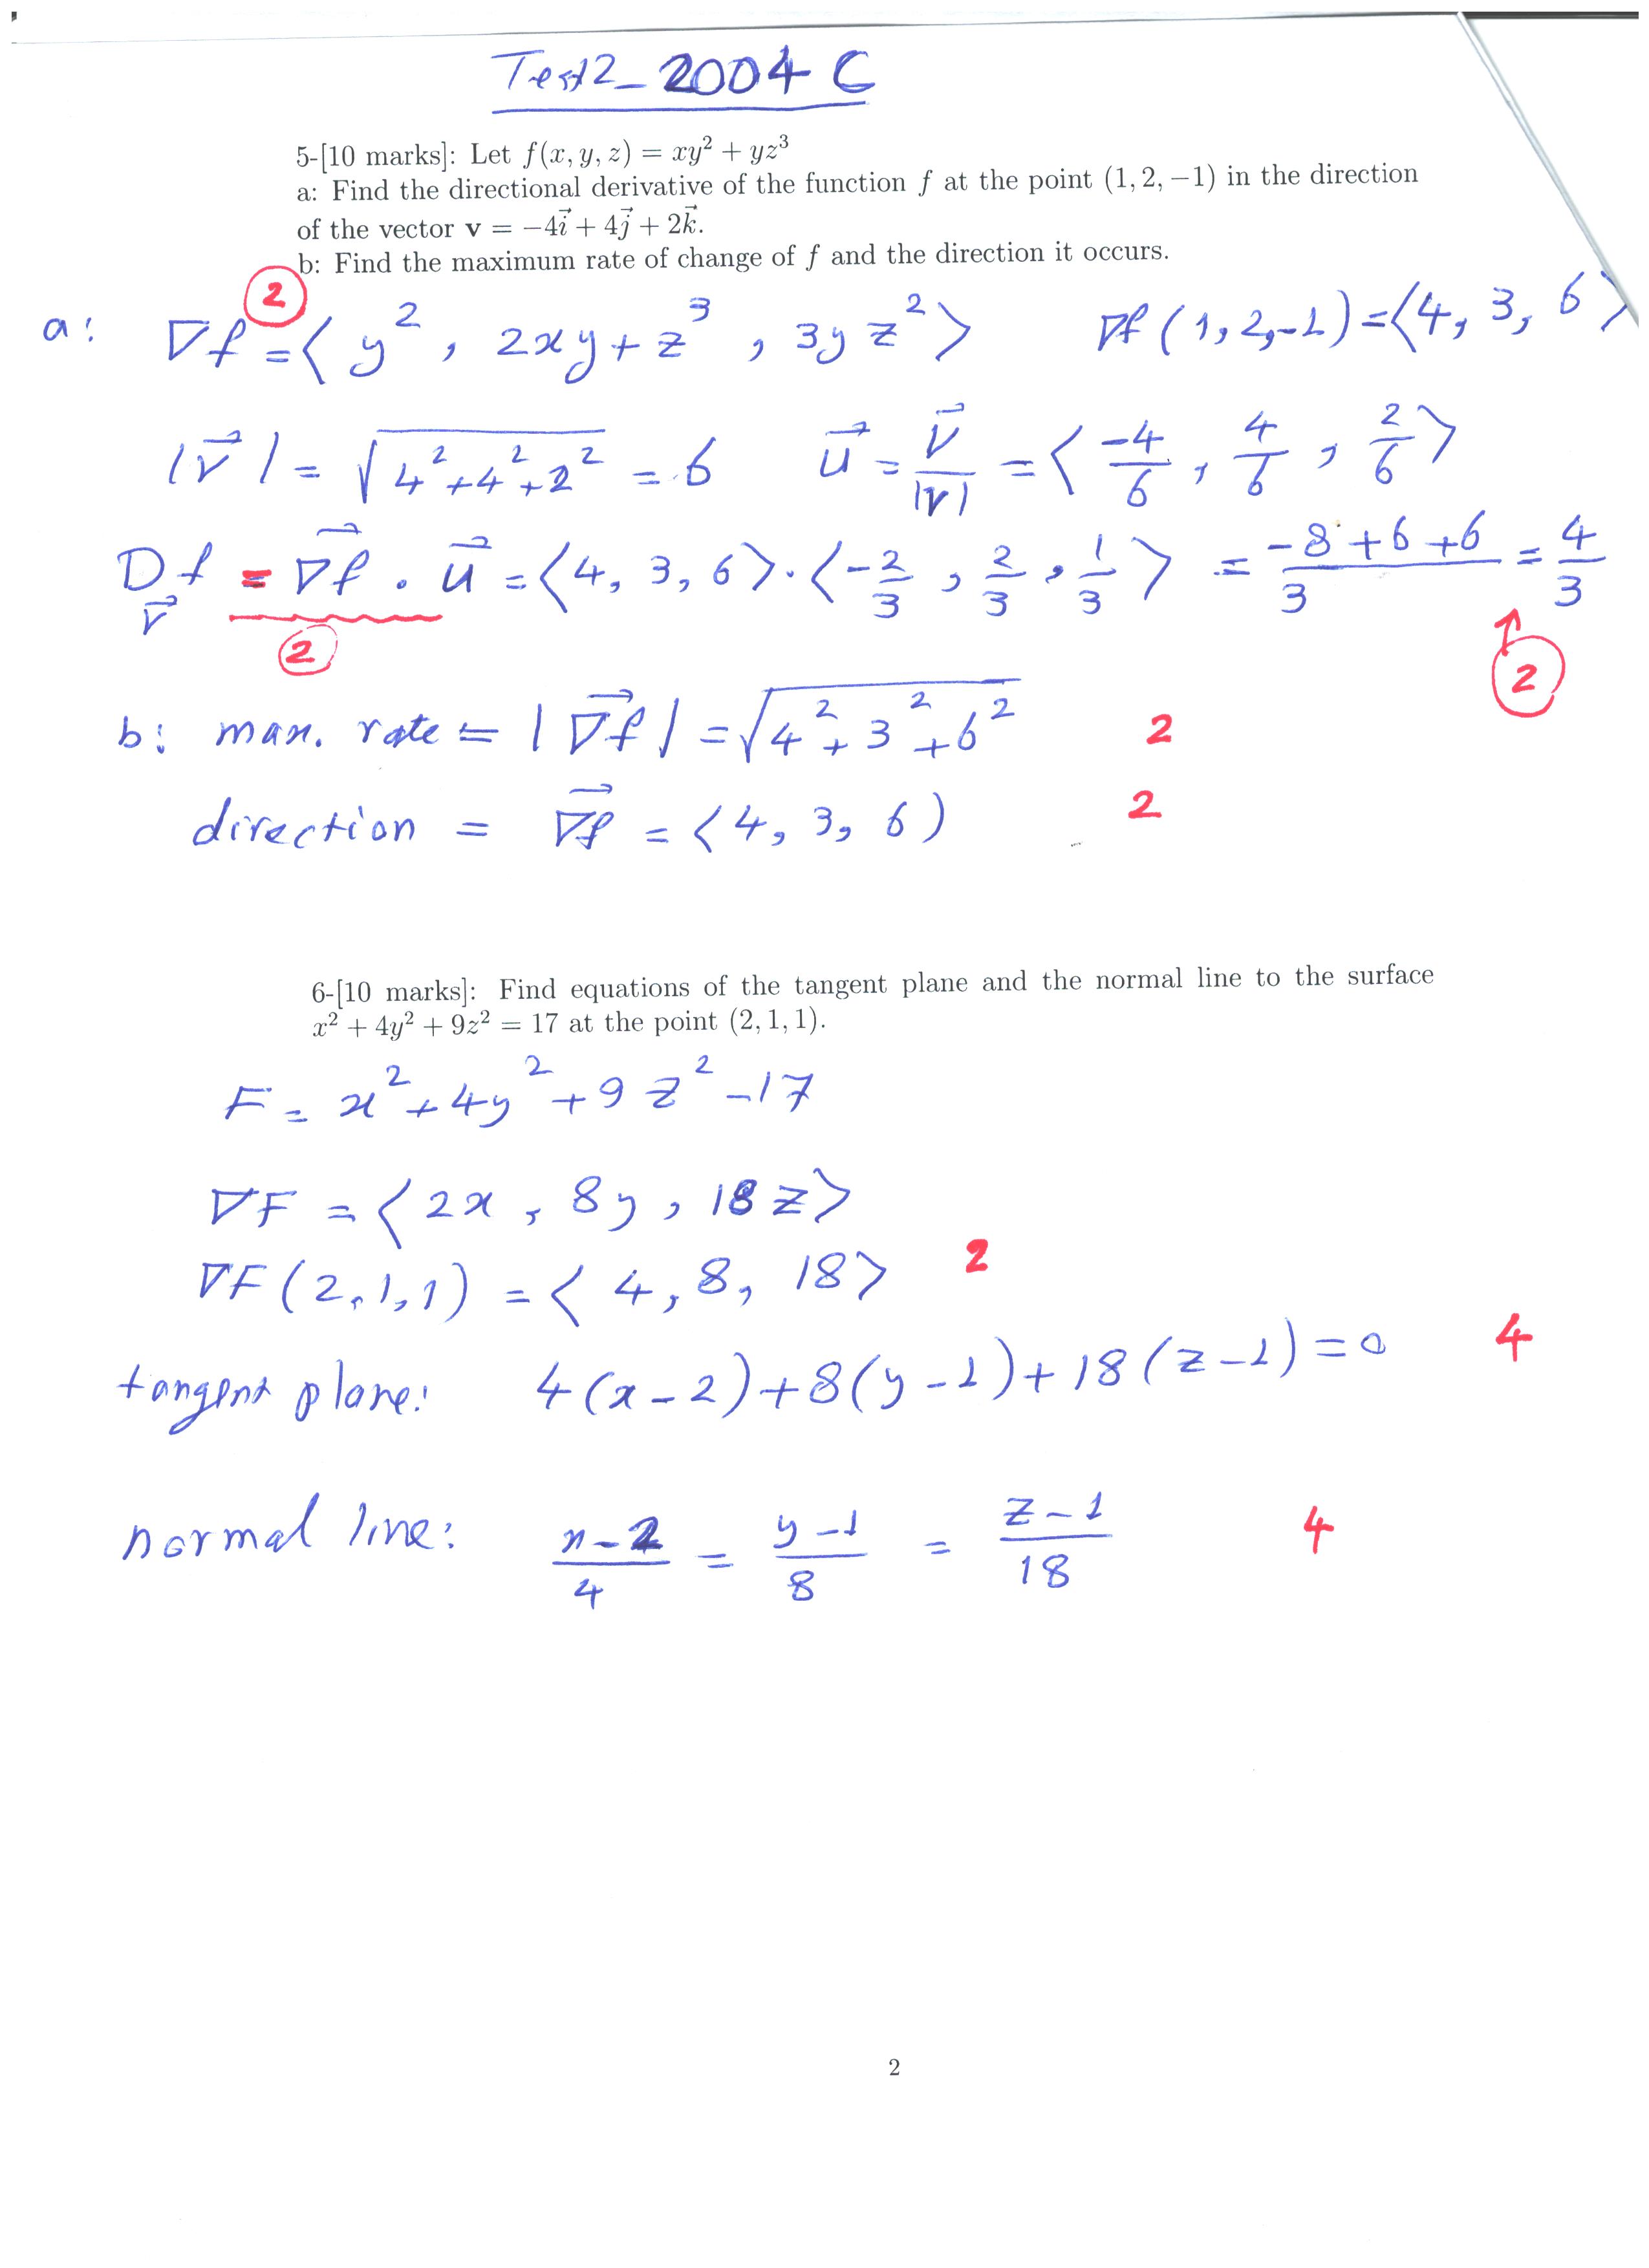 Test2_2004 C
5-[10 marks]: Let f(x, y, z) = xy² + yz³
a: Find the directional derivative of the function f at the point (1, 2, −1) in the direction
of the vector v = −4i⃗ + 4j⃗ + 2k⃗.
b: Find the maximum rate of change of f and the direction it occurs.
2
a: ∇f = ⟨ y² , 2xy + z³ , 3y z² ⟩ ∇f (1, 2, -1) = ⟨4, 3, 6⟩
|v⃗| = √(4² + 4² + 2²) = 6 u⃗ = v⃗/|v| = ⟨ -4/6 , 4/6 , 2/6 ⟩
D_v⃗ f = ∇f⃗ . u⃗ = ⟨4, 3, 6⟩ . ⟨ -2/3 , 2/3 , 1/3 ⟩ = (-8 + 6 + 6)/3 = 4/3
2 ↑ 2
b: max. rate = |∇f⃗| = √(4² + 3² + 6²) 2
direction = ∇f⃗ = ⟨4, 3, 6) 2
6-[10 marks]: Find equations of the tangent plane and the normal line to the surface
x² + 4y² + 9z² = 17 at the point (2, 1, 1).
F = x² + 4y² + 9 z² - 17
∇F = ⟨ 2x , 8y , 18 z ⟩
∇F (2, 1, 1) = ⟨ 4, 8, 18⟩ 2
tangent plane: 4(x - 2) + 8(y - 1) + 18(z - 1) = 0 4
normal line: (x - 2)/4 = (y - 1)/8 = (z - 1)/18 4
2